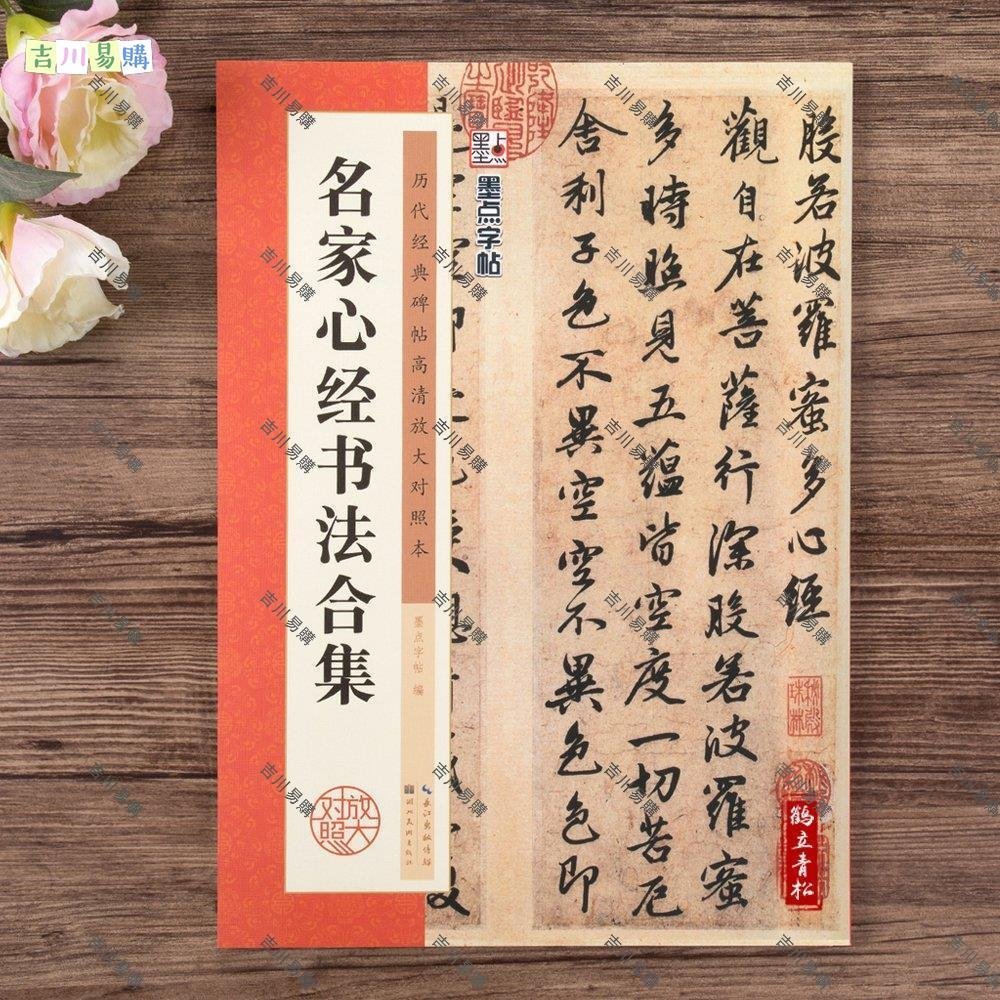 吉川易購
名家心经书法合集
历代经典碑帖高清放大对照本
墨点字帖 编
放大对照
长江出版传媒
湖北美术出版社
墨点
墨点字帖
般若波羅蜜多心經
觀自在菩薩行深般若波羅蜜
多時照見五蘊皆空度一切苦厄
舍利子色不異空空不異色色即
鹤立青松